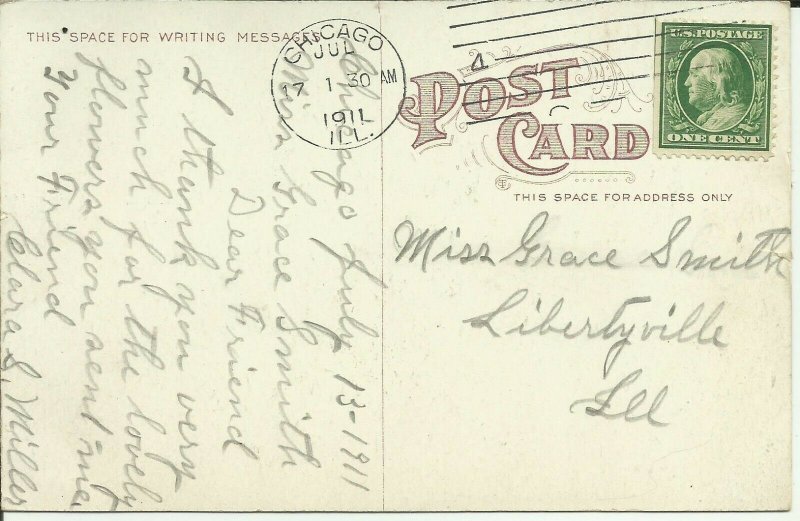 THIS SPACE FOR WRITING MESSAGES
CHICAGO
JUL
17 1 30 AM
1911
ILL.
4
U.S. POSTAGE
ONE CENT
POST
CARD
THIS SPACE FOR ADDRESS ONLY
Miss Grace Smith
Libertyville
Ill
Chicago July 13-1911
Miss Grace Smith
Dear Friend
I thank you very
much for the lovely
flowers you sent me
Your Friend
Clara S. Miller